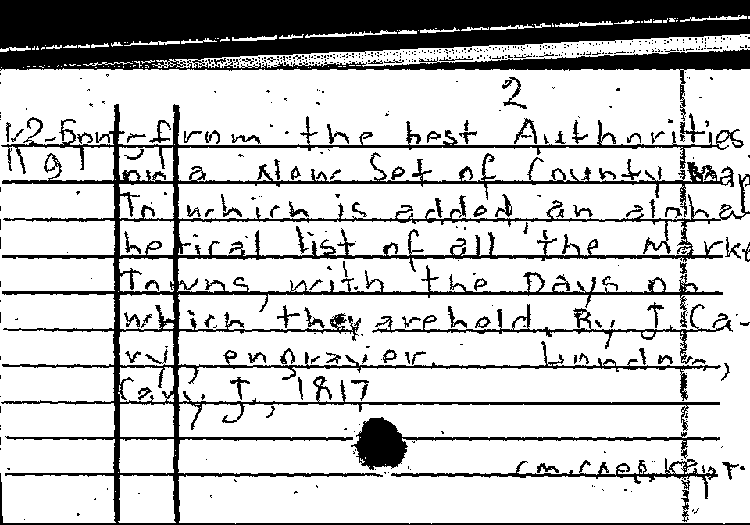 2
from the best Authorities
on a New Set of County Map
To which is added, an alpha-
betical list of all the Marke
Towns, with the Days on
which they are held. By J. Ca-
ry, engraver. London,
Cary, J., 1817
см. след. карт.